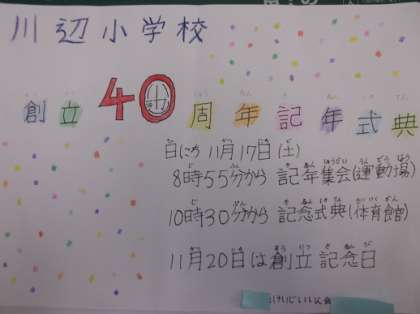 川辺小学校
創立40周年記年式典
日にち 11月17日(土)
8時55分から 記年集会(運動場)
10時30分から 記念式典(体育館)
11月20日は創立記念日